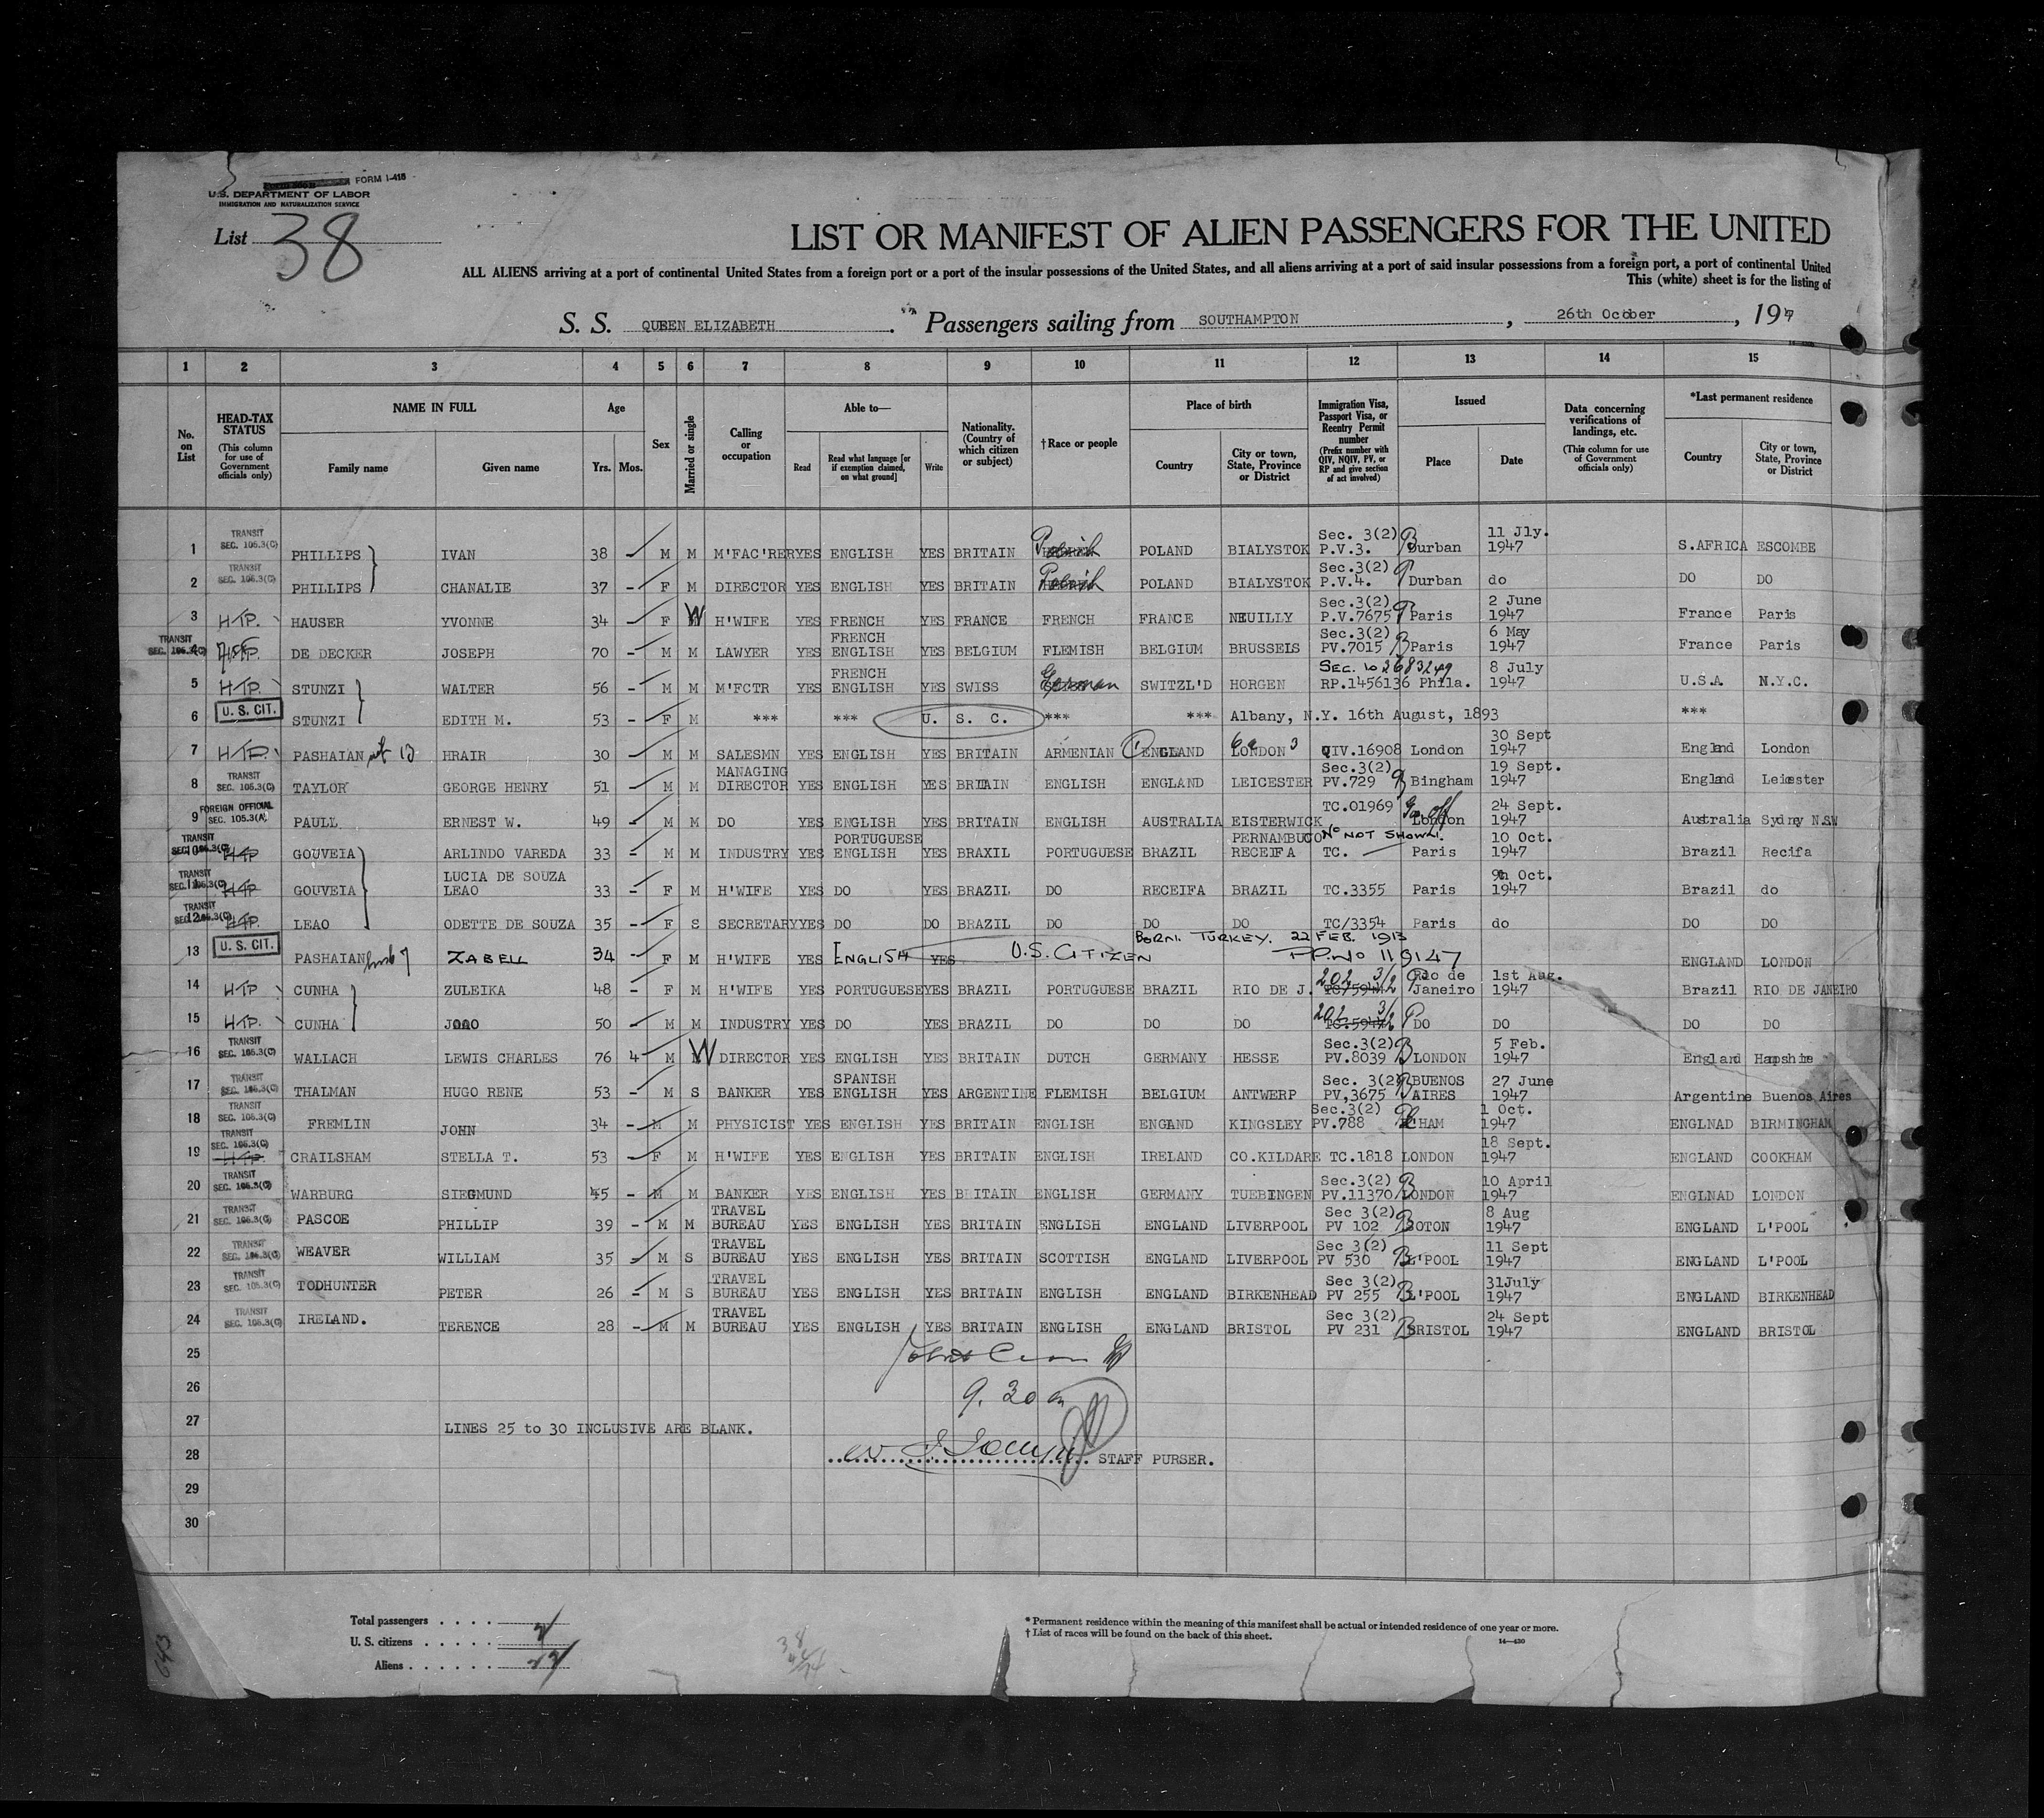 FORM I-415
U.S. DEPARTMENT OF LABOR
IMMIGRATION AND NATURALIZATION SERVICE
List 38
LIST OR MANIFEST OF ALIEN PASSENGERS FOR THE UNITED
ALL ALIENS arriving at a port of continental United States from a foreign port or a port of the insular possessions of the United States, and all aliens arriving at a port of said insular possessions from a foreign port, a port of continental United
This (white) sheet is for the listing of
S. S. QUEEN ELIZABETH. Passengers sailing from SOUTHAMPTON, 26th Ocober, 197
1 2 3 4 5 6 7 8 9 10 11 12 13 14 15
No. on List
HEAD-TAX STATUS (This column for use of Government officials only)
NAME IN FULL Family name Given name
Age Yrs. Mos.
Sex
Married or single
Calling or occupation
Able to— Read Read what language [or if exemption claimed, on what ground] Write
Nationality. (Country of which citizen or subject)
†Race or people
Place of birth Country City or town, State, Province or District
Immigration Visa, Passport Visa, or Reentry Permit number (Prefix number with QIV, NQIV, PV, or RP and give section of act involved)
Issued Place Date
Data concerning verifications of landings, etc. (This column for use of Government officials only)
*Last permanent residence Country City or town, State, Province or District
1 TRANSIT SEC. 105.3(C) PHILLIPS IVAN 38 - M M M'FAC'RER YES ENGLISH YES BRITAIN Polish POLAND BIALYSTOK Sec. 3(2) P.V.3. Durban 11 Jly. 1947 S.AFRICA ESCOMBE
2 TRANSIT SEC. 105.3(C) PHILLIPS CHANALIE 37 - F M DIRECTOR YES ENGLISH YES BRITAIN Polish POLAND BIALYSTOK Sec.3(2) P.V.4. Durban do DO DO
3 HTP. HAUSER YVONNE 34 - F W H'WIFE YES FRENCH YES FRANCE FRENCH FRANCE NEUILLY Sec.3(2) P.V.7675 Paris 2 June 1947 France Paris
4 TRANSIT SEC. 105.3(C) HTP. DE DECKER JOSEPH 70 - M M LAWYER YES FRENCH ENGLISH YES BELGIUM FLEMISH BELGIUM BRUSSELS Sec.3(2) PV.7015 Paris 6 May 1947 France Paris
5 HTP. STUNZI WALTER 56 - M M M'FCTR YES FRENCH ENGLISH YES SWISS German SWITZL'D HORGEN SEC. 10 2683249 RP.1456136 Phila. 8 July 1947 U.S.A N.Y.C.
6 U. S. CIT. STUNZI EDITH M. 53 - F M *** *** U. S. C. *** *** Albany, N.Y. 16th August, 1893 ***
7 HTP. PASHAIAN wf 13 HRAIR 30 - M M SALESMN YES ENGLISH YES BRITAIN ARMENIAN ENGLAND LONDON QIV.16908 London 30 Sept 1947 England London
8 TRANSIT SEC. 105.3(C) TAYLOR GEORGE HENRY 51 - M M MANAGING DIRECTOR YES ENGLISH YES BRITAIN ENGLISH ENGLAND LEICESTER Sec.3(2) PV.729 Bingham 19 Sept. 1947 England Leicester
9 FOREIGN OFFICIAL SEC. 105.3(A) PAULL ERNEST W. 49 - M M DO YES ENGLISH YES BRITAIN ENGLISH AUSTRALIA EISTERWICK TC.01969 London 24 Sept. 1947 Australia Sydny N.SW
10 TRANSIT SEC. 105.3(C) HTP GOUVEIA ARLINDO VAREDA 33 - M M INDUSTRY YES PORTUGUESE ENGLISH YES BRAXIL PORTUGUESE BRAZIL PERNAMBUCO RECEIFA No NOT SHOWN. TC. Paris 10 Oct. 1947 Brazil Recifa
11 TRANSIT SEC. 105.3(C) HTP GOUVEIA LUCIA DE SOUZA LEAO 33 - F M H'WIFE YES DO YES BRAZIL DO RECEIFA BRAZIL TC.3355 Paris 9h Oct. 1947 Brazil do
12 TRANSIT SEC. 105.3(C) HTP. LEAO ODETTE DE SOUZA 35 - F S SECRETARY YES DO DO BRAZIL DO DO DO TC/3354 Paris do DO DO
13 U. S. CIT. PASHAIAN husb 7 ZABELL 34 - F M H'WIFE YES ENGLISH YES U.S. CITIZEN BORN. TURKEY. 22 FEB. 1913 PP.No 119147 ENGLAND LONDON
14 HTP CUNHA ZULEIKA 48 - F M H'WIFE YES PORTUGUESE YES BRAZIL PORTUGUESE BRAZIL RIO DE J. 202 3/2 Rio de Janeiro 1st Aug. 1947 Brazil RIO DE JANEIRO
15 HTP. CUNHA JOAO 50 - M M INDUSTRY YES DO YES BRAZIL DO DO DO 202 3/2 DO DO DO DO
16 TRANSIT SEC. 105.3(C) WALLACH LEWIS CHARLES 76 4 M W DIRECTOR YES ENGLISH YES BRITAIN DUTCH GERMANY HESSE Sec.3(2) PV.8039 LONDON 5 Feb. 1947 England Hampshire
17 TRANSIT SEC. 105.3(C) THALMAN HUGO RENE 53 - M S BANKER YES SPANISH ENGLISH YES ARGENTINE FLEMISH BELGIUM ANTWERP Sec. 3(2) PV,3675 BUENOS AIRES 27 June 1947 Argentine Buenos Aires
18 TRANSIT SEC. 105.3(C) FREMLIN JOHN 34 - M M PHYSICIST YES ENGLISH YES BRITAIN ENGLISH ENGAND KINGSLEY Sec.3(2) PV.788 B'HAM 1 Oct. 1947 ENGLNAD BIRMINGHAM
19 TRANSIT SEC. 105.3(C) HTP. CRAILSHAM STELLA T. 53 - F M H'WIFE YES ENGLISH YES BRITAIN ENGLISH IRELAND CO.KILDARE TC.1818 LONDON 18 Sept. 1947 ENGLAND COOKHAM
20 TRANSIT SEC. 105.3(C) WARBURG SIEGMUND 45 - M M BANKER YES ENGLISH YES BRITAIN ENGLISH GERMANY TUEBINGEN Sec.3(2) PV.11370 LONDON 10 April 1947 ENGLNAD LONDON
21 TRANSIT SEC. 105.3(C) PASCOE PHILLIP 39 - M M TRAVEL BUREAU YES ENGLISH YES BRITAIN ENGLISH ENGLAND LIVERPOOL Sec 3(2) PV 102 BOTON 8 Aug 1947 ENGLAND L'POOL
22 TRANSIT SEC. 105.3(C) WEAVER WILLIAM 35 - M S TRAVEL BUREAU YES ENGLISH YES BRITAIN SCOTTISH ENGLAND LIVERPOOL Sec 3(2) PV 530 L'POOL 11 Sept 1947 ENGLAND L'POOL
23 TRANSIT SEC. 105.3(C) TODHUNTER PETER 26 - M S TRAVEL BUREAU YES ENGLISH YES BRITAIN ENGLISH ENGLAND BIRKENHEAD Sec 3(2) PV 255 L'POOL 31July 1947 ENGLAND BIRKENHEAD
24 TRANSIT SEC. 105.3(C) IRELAND. TERENCE 28 - M M TRAVEL BUREAU YES ENGLISH YES BRITAIN ENGLISH ENGLAND BRISTOL Sec 3(2) PV 231 BRISTOL 24 Sept 1947 ENGLAND BRISTOL
25
26 9. 30 am
27 LINES 25 to 30 INCLUSIVE ARE BLANK.
28 STAFF PURSER.
29
30
Total passengers . . . .
U. S. citizens . . . . . 2
Aliens . . . . . . 22
* Permanent residence within the meaning of this manifest shall be actual or intended residence of one year or more.
† List of races will be found on the back of this sheet.
14—430
643